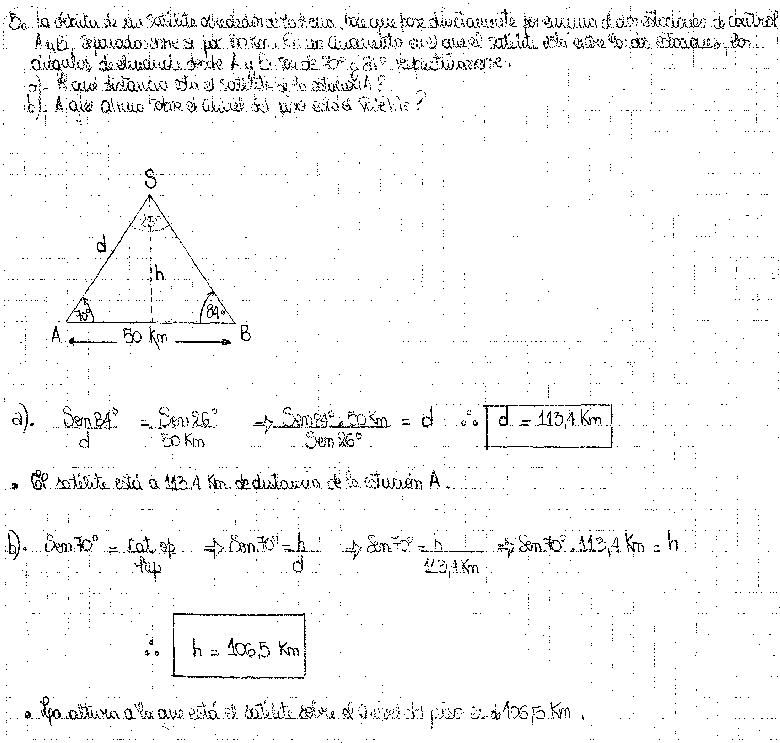 5. La órbita de un satélite alrededor de la tierra, hace que pase directamente por encima de dos estaciones de control
A y B, separadas entre si por 50 Km. En un momento en el que el satélite está entre las dos estaciones, los
ángulos de elevación desde A y B son de 70° y 84° respectivamente.
a). A qué distancia está el satélite de la estación A?
b). A que altura sobre el nivel del piso está el satélite?
S
26°
d
h
70°
84°
A
50 Km
B
a). Sen 84° / d = Sen 26° / 50 Km ⇒ Sen 84° . 50 Km / Sen 26° = d ∴ d = 113,4 Km
• El satélite está a 113,4 Km de distancia de la estación A.
b). Sen 70° = cat op / hip ⇒ Sen 70° = h / d ⇒ Sen 70° = h / 113,4 Km ⇒ Sen 70° . 113,4 Km = h
∴ h = 106,5 Km
• La altura a la que está el satélite sobre el nivel del piso es de 106,5 Km.